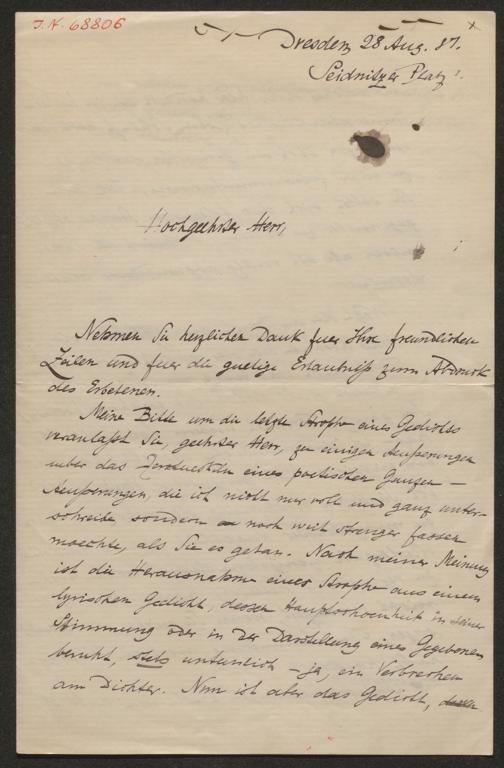 J.N. 68806
Dresden 28 Aug. 87.
Seidnitzer Platz 1.
Hochgeehrter Herr,
Nehmen Sie herzlichen Dank fuer Ihre freundlichen
Zeilen und fuer die guetige Erlaubniß zum Abdruck
des Erbetenen.
Meine Bitte um die letzte Strophe eines Gedichts
veranlaßt Sie, geehrter Herr, zu einigen Aeußerungen
ueber das Zerstueckeln eines poetischen Ganzen –
Aeußerungen, die ich nicht nur voll und ganz unter-
schreibe sondern noch weit strenger fassen
moechte, als Sie es getan. Nach meiner Meinung
ist die Herausnahme einer Strophe aus einem
lyrischen Gedicht, dessen Hauptschoenheit in seiner
Stimmung oder in der Darstellung eines Gegebenen
beruht, stets untunlich – ja, ein Verbrechen
am Dichter. Nun ist aber das Gedicht,